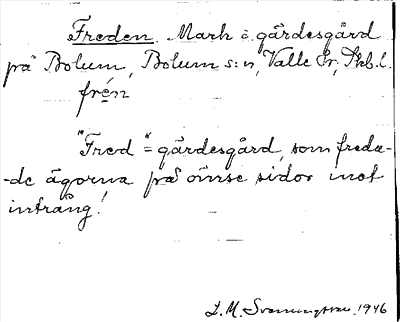 Freden. Mark o. gärdesgård
på Bolum, Bolum s:n, Valle hr, Skb. l.
frén
"Fred" = gärdesgård, som freda-
-de ägorna på ömse sidor mot
intrång!
L. M. 1946